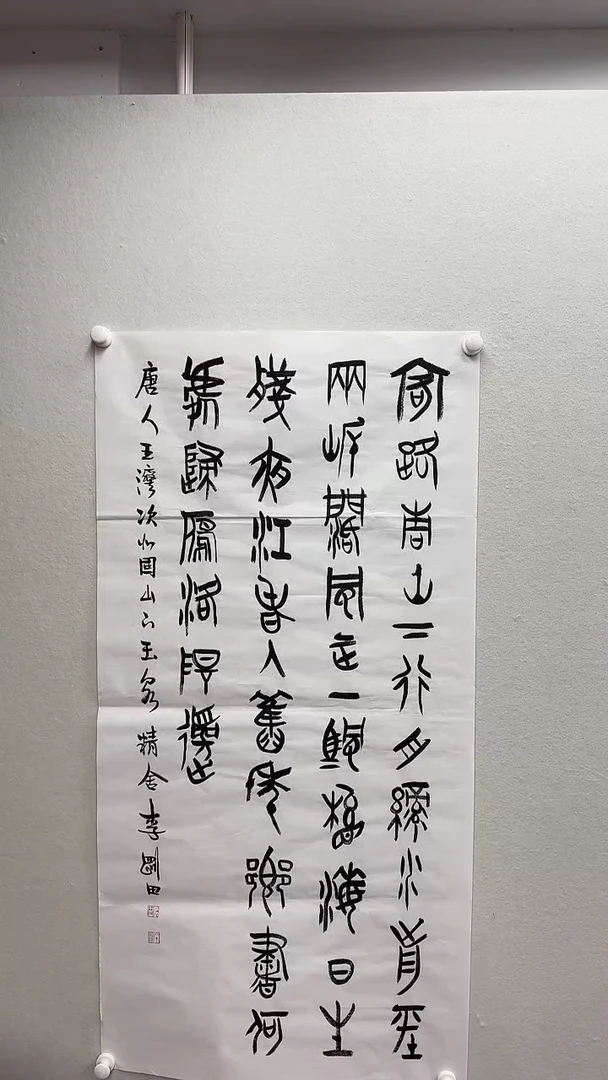 客路青山下行舟綠水前
兩岸闊風正一帆懸海日生
殘夜江春入舊年鄉書何
歸雁洛陽邊
唐人王灣次北固山下玉泉精舍李剛田